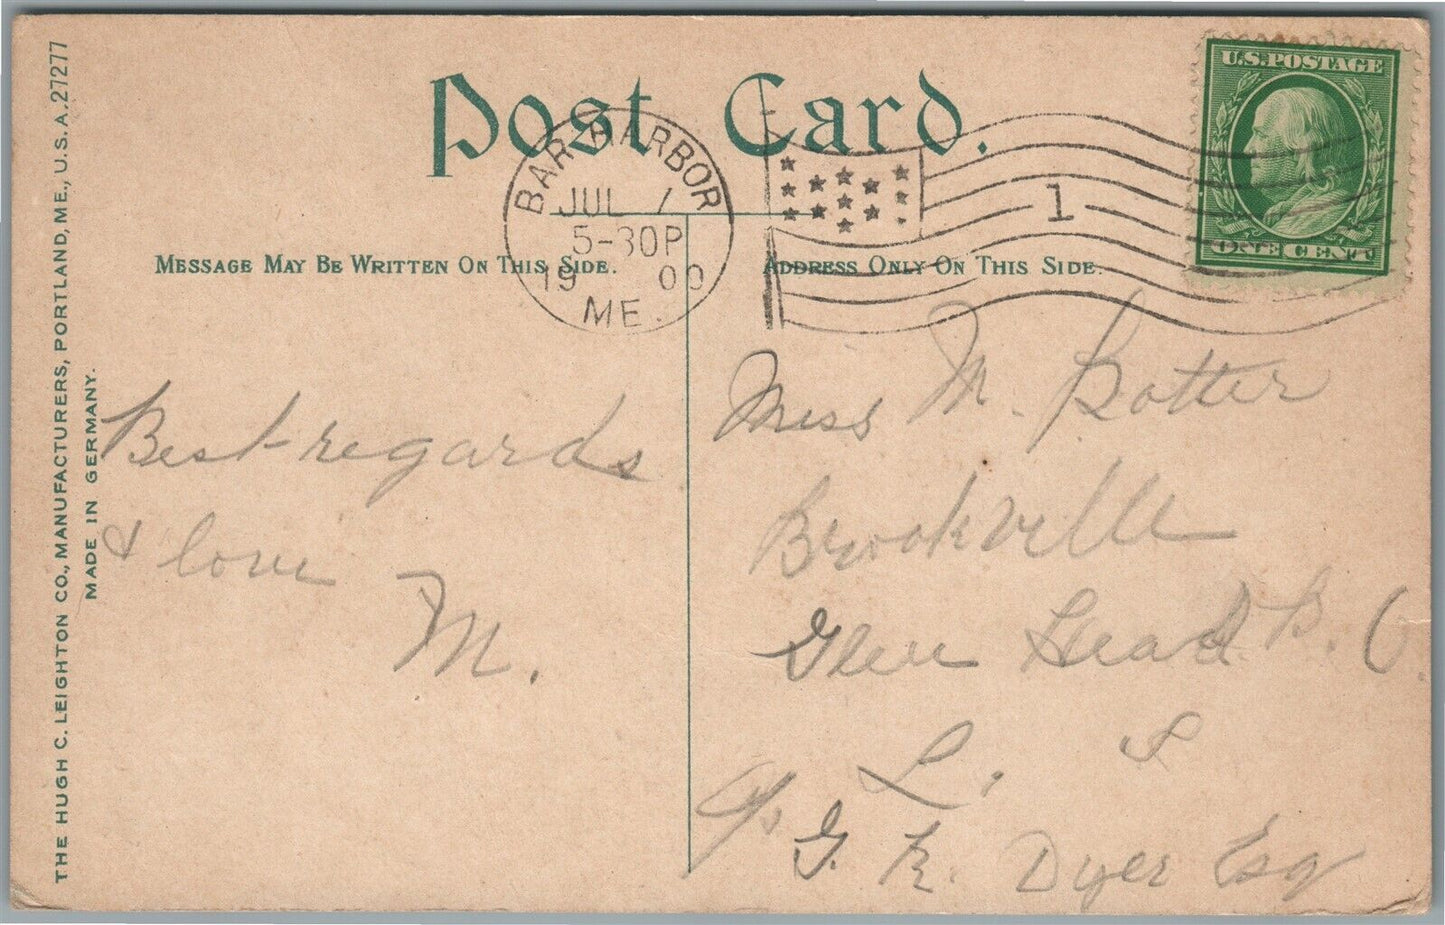 Post Card.
U.S. POSTAGE
ONE CENT
BAR HARBOR
JUL 7
5-30P
19 09
ME.
1
MESSAGE MAY BE WRITTEN ON THIS SIDE.
ADDRESS ONLY ON THIS SIDE.
THE HUGH C. LEIGHTON CO., MANUFACTURERS, PORTLAND, ME., U.S.A. 27277
MADE IN GERMANY.
Best regards
& love
M.
Miss M. Potter
Brookville
Glen Head P. O.
L. I
c/o
G. R. Dyer Esq